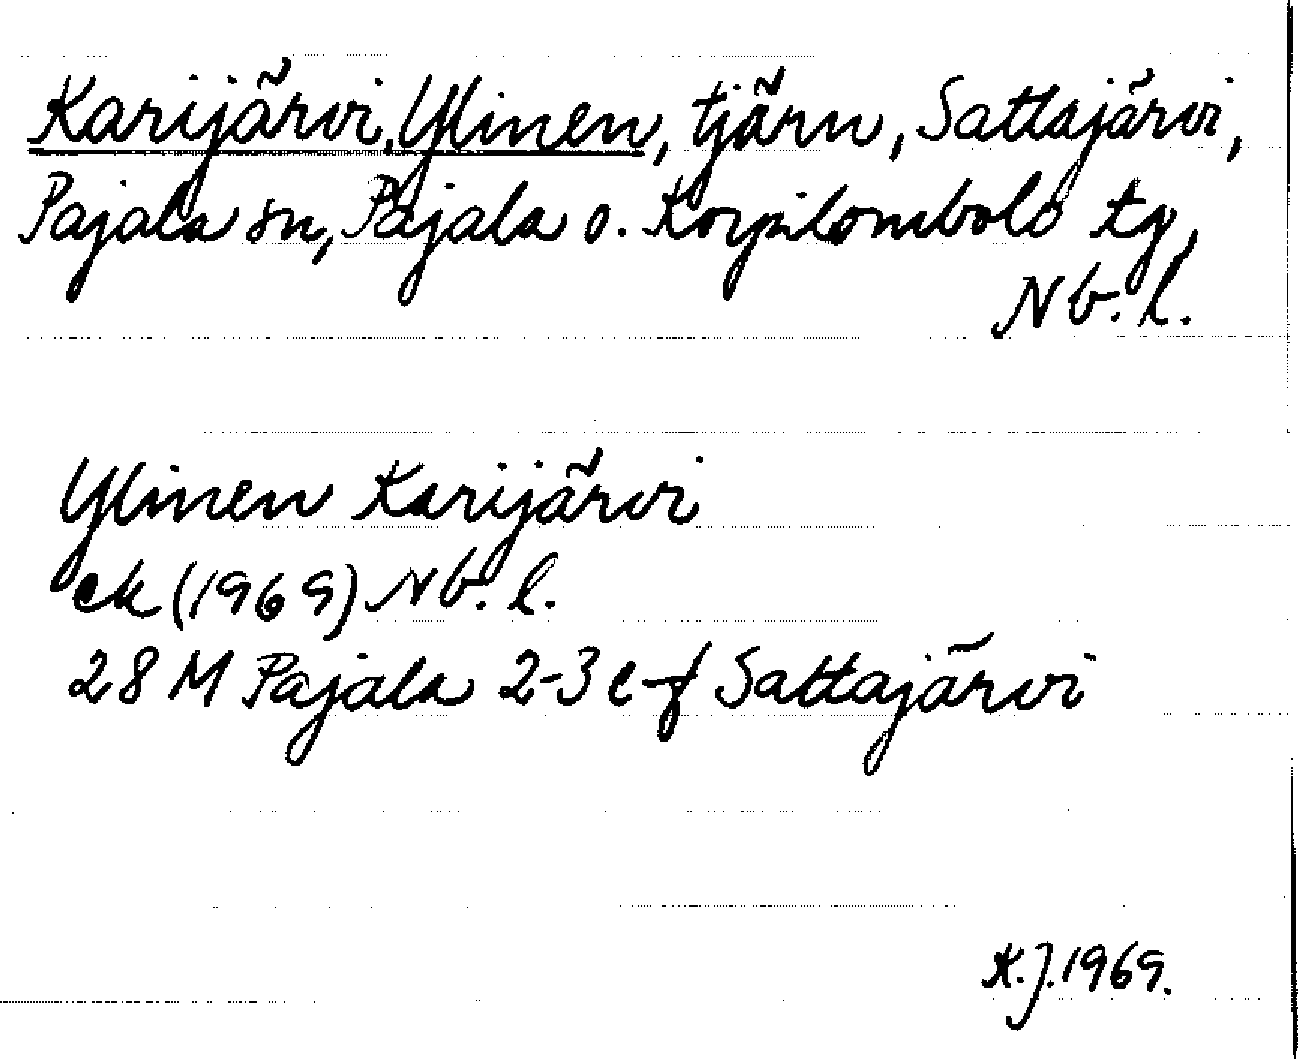 Karijärvi, Ylinen, tjärn, Sattajärvi,
Pajala sn, Pajala o. Korpilombolo tg,
Nb. l.
Ylinen Karijärvi
ek (1969) Nb. l.
28 M Pajala 2-3 e-f Sattajärvi
K.J. 1969.